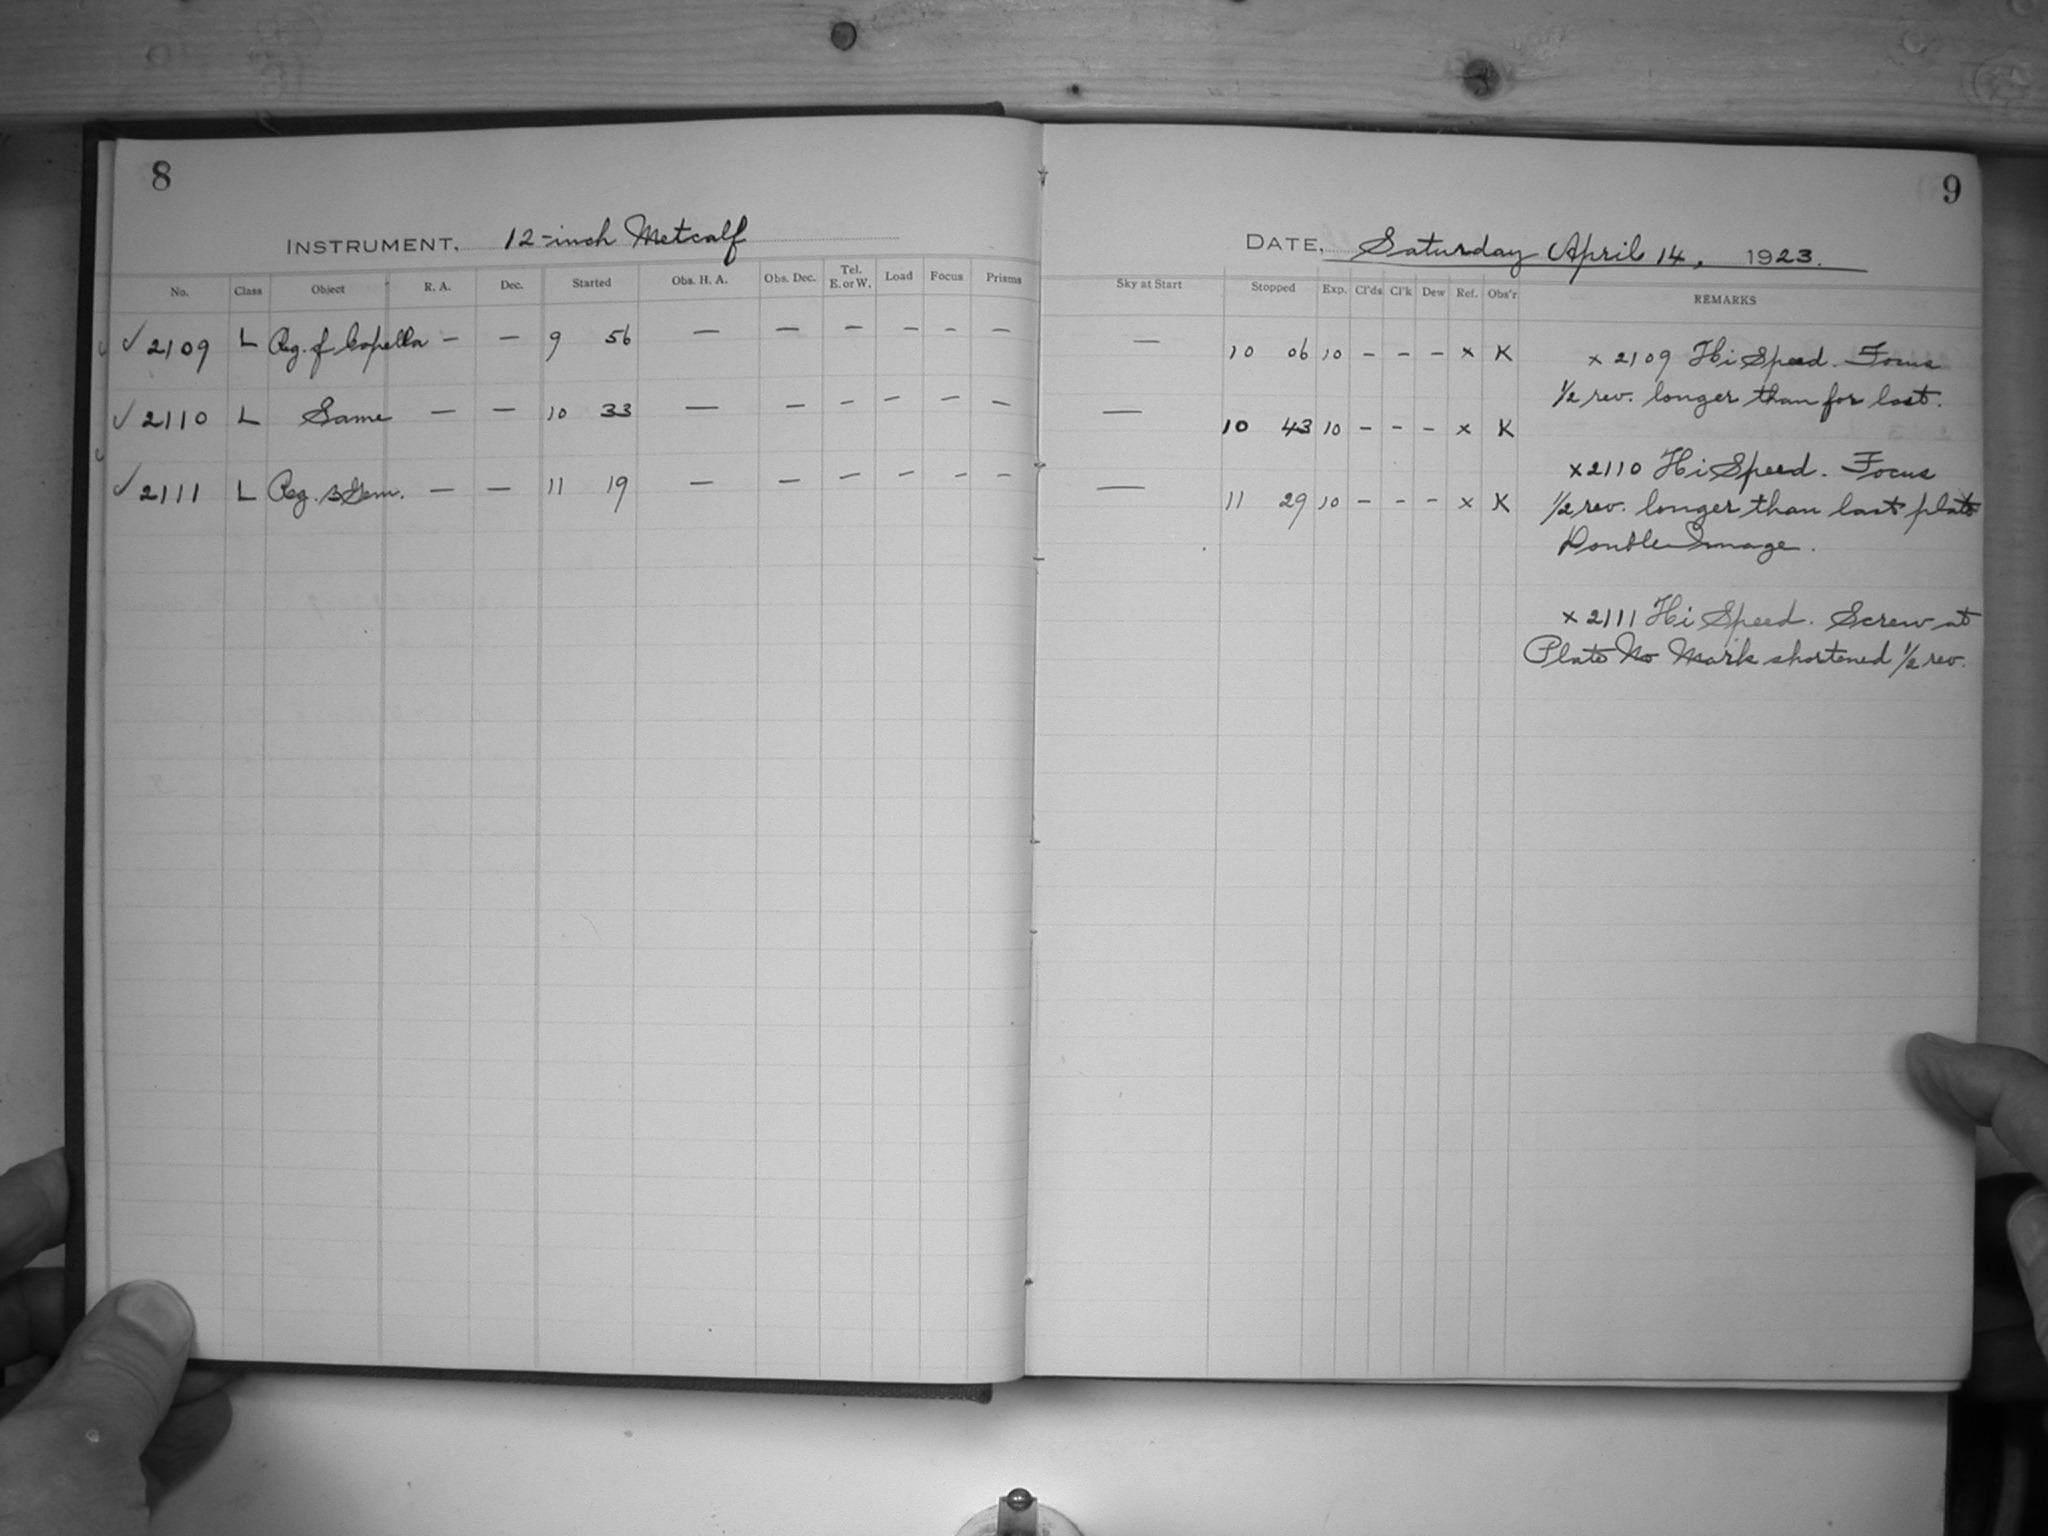 8
INSTRUMENT, 12-inch Metcalf
No. Class Object R. A. Dec. Started Obs. H. A. Obs. Dec. Tel. E. or W. Load Focus Prisms
✓ 2109 L Reg. of Capella — — 9 56 — — — — — —
✓ 2110 L Same — — 10 33 — — — — — —
✓ 2111 L Reg. β Gem. — — 11 19 — — — — — —
9
DATE, Saturday April 14, 1923.
Sky at Start Stopped Exp. Cl'ds Cl'k Dew Ref. Obs'r REMARKS
— 10 06 10 - - - x K
— 10 43 10 - - - x K
— 11 29 10 - - - x K
x 2109 Hi Speed. Focus
1/2 rev. longer than for last.
x 2110 Hi Speed. Focus
1/2 rev. longer than last plate
Double Image.
x 2111 Hi Speed. Screw at
Plate No Mark shortened 1/2 rev.